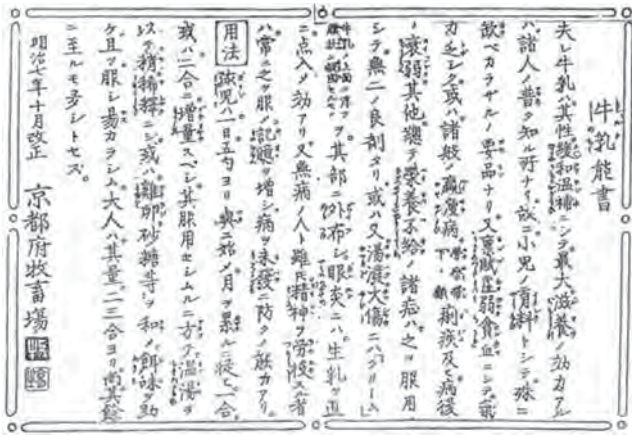 牛乳能書
夫レ牛乳ハ其性緩和温補ニシテ最大滋養ノ効力アル
ハ諸人ノ普ク知ル所ナリ故ニ小児ノ養料トシテ殊ニ
欠ベカラザルノ要品ナリ又稟賦虚弱貧血ニシテ氣
力乏シク或ハ諸般ノ羸痩病 労瘵 下血 痢疾及ヒ病後
ノ衰弱其他總テ榮養不給ノ諸症ハ之ヲ服用
シテ無二ノ良剤タリ或ハ又湯火傷ニハクリーム
牛乳ノ上面ニ浮フ ヲ其部ニ外布シ眼炎ニハ生乳ヲ直
ニ点入メ効アリ又無病ノ人ト雖氏精神ヲ労役スル者
ハ常ニ之ヲ服メ記臆ヲ増シ病ヲ未發ニ防クノ能力アリ
用法 孩児ハ一日五勺ヨリ與ニ始メ月ヲ累ルニ従ヒ一合
或ハ二合ニ増量スベシ其服用セシムルニ方テ温湯ヲ
以テ稍稀釋ニシ或ハ雞卵砂糖等ヲ和メ餌味ヲ助
ケ且ツ服シ易カラシム大人ハ其量二三合ヨリ尚其餘
ニ至ルモ多シトセズ
明治七年十月改正 京都府牧畜場